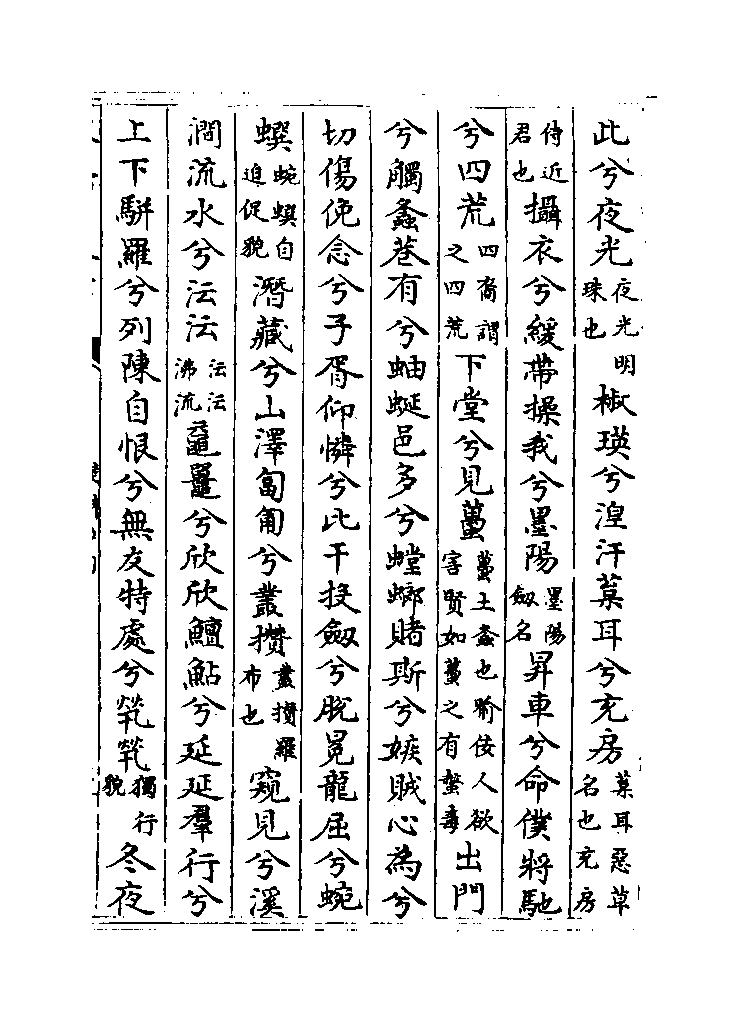 此兮夜光夜光明珠也椒瑛兮湟汙葈耳兮充房葈耳惡草名也充房
侍近君也攝衣兮緩帶操我兮墨陽墨陽劔名昇車兮命僕將馳
兮四荒四裔謂之四荒下堂兮見蠆蠆土螽也喻佞人欲害賢如蠆之有螫毒出門
兮觸螽巷有兮蚰蜒邑多兮螳螂賭斯兮嫉賊心為兮
切傷俛念兮子胥仰憐兮比干投劔兮脫冕龍屈兮蜿
蟤蜿蟤自迫促貌潛藏兮山澤匍匐兮叢攢叢攢羅布也窺見兮溪
澗流水兮沄沄沄沄沸流黿鼉兮欣欣鱣鮎兮延延羣行兮
上下駢羅兮列陳自恨兮無友特處兮煢煢獨行貌冬夜